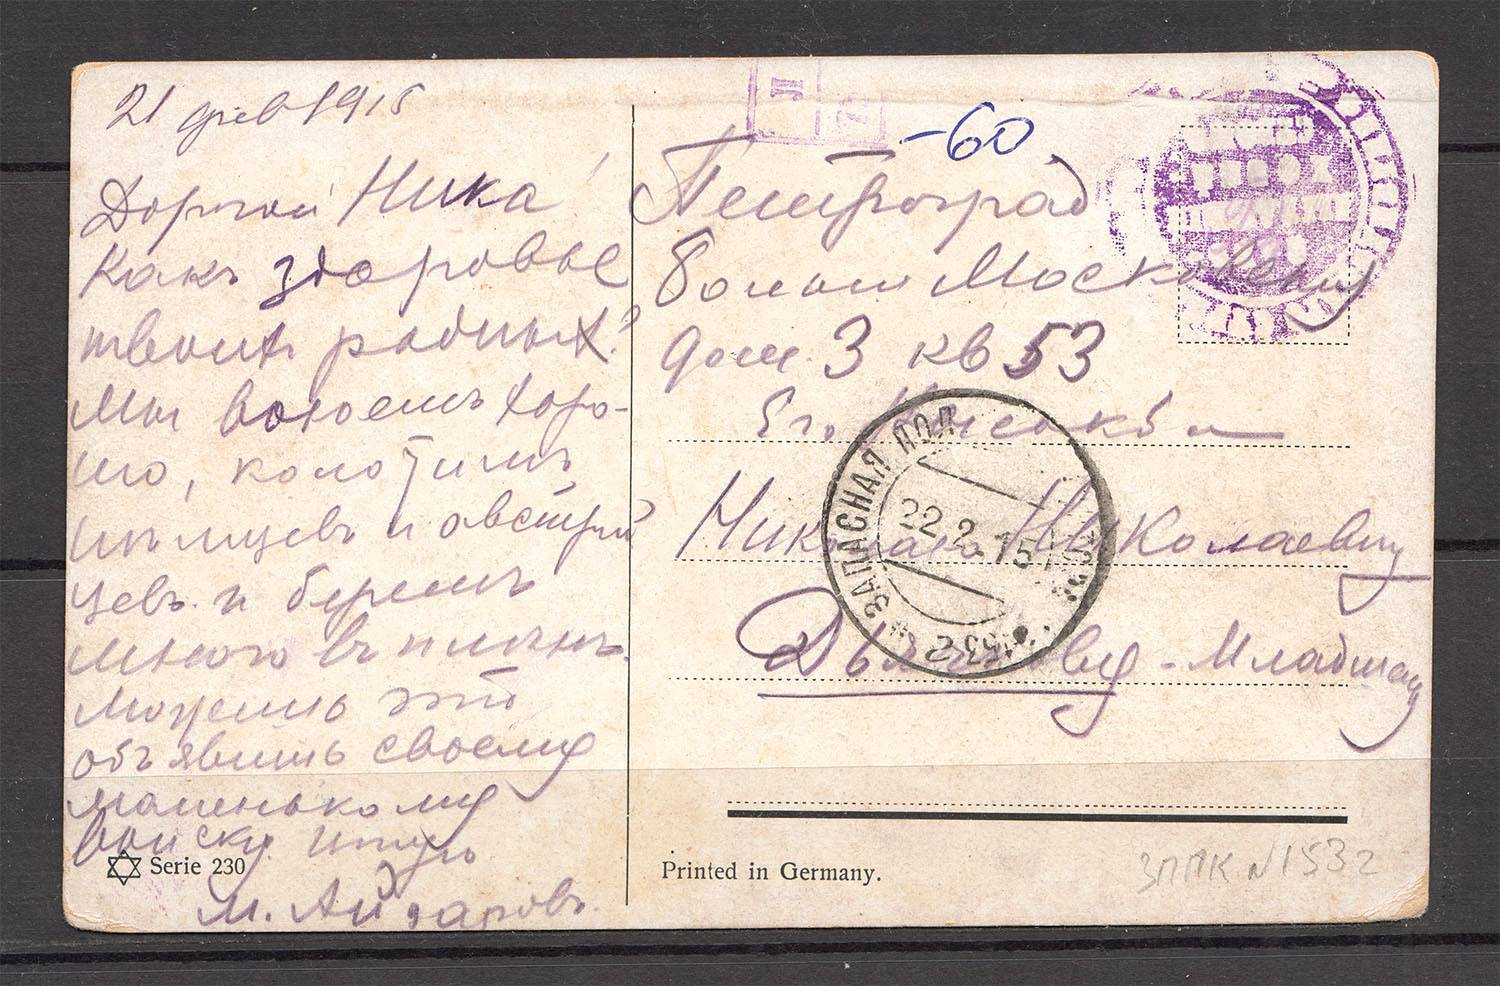 21 фев 1915
Дорогой Ника!
Какъ здоровье
твоихъ родных?
Мы воюемъ хоро-
шо, колотимъ
нѣмцевъ и австрій
цевъ и беремъ
много въ плѣнъ.
Можешь это
объявить своему
маленькому
войску.
М. Айдаровъ.
Serie 230
-60
Петроград
Больш Московская
дом 3 кв 53
Николаю Николаевичу
Младшему
ЗАПАСНАЯ ПОЛ
22.2.15
Printed in Germany.
ЗППК N 153 г